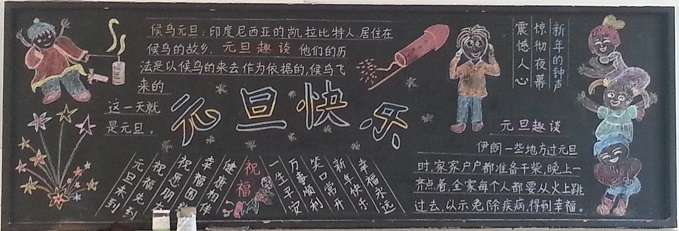 候鸟元旦：印度尼西亚的凯拉比特人居住在
候鸟的故乡，元旦趣谈 他们的历
法是以候鸟的来去作为依据的，候鸟飞
来的
这一天就
是元旦。
元旦快乐
新年的钟声
惊彻夜幕
震撼人心
元旦趣谈
伊朗一些地方过元旦
时，家家户户都准备干柴，晚上一
齐点着，全家每个人都要从火上跳
过去，以示免除疾病，得到幸福。
元旦未到
祝福先到
祝愿朋友
幸福围绕
健康相伴
祝福
一生平安
万事顺利
笑口常开
新年快乐
幸福永远